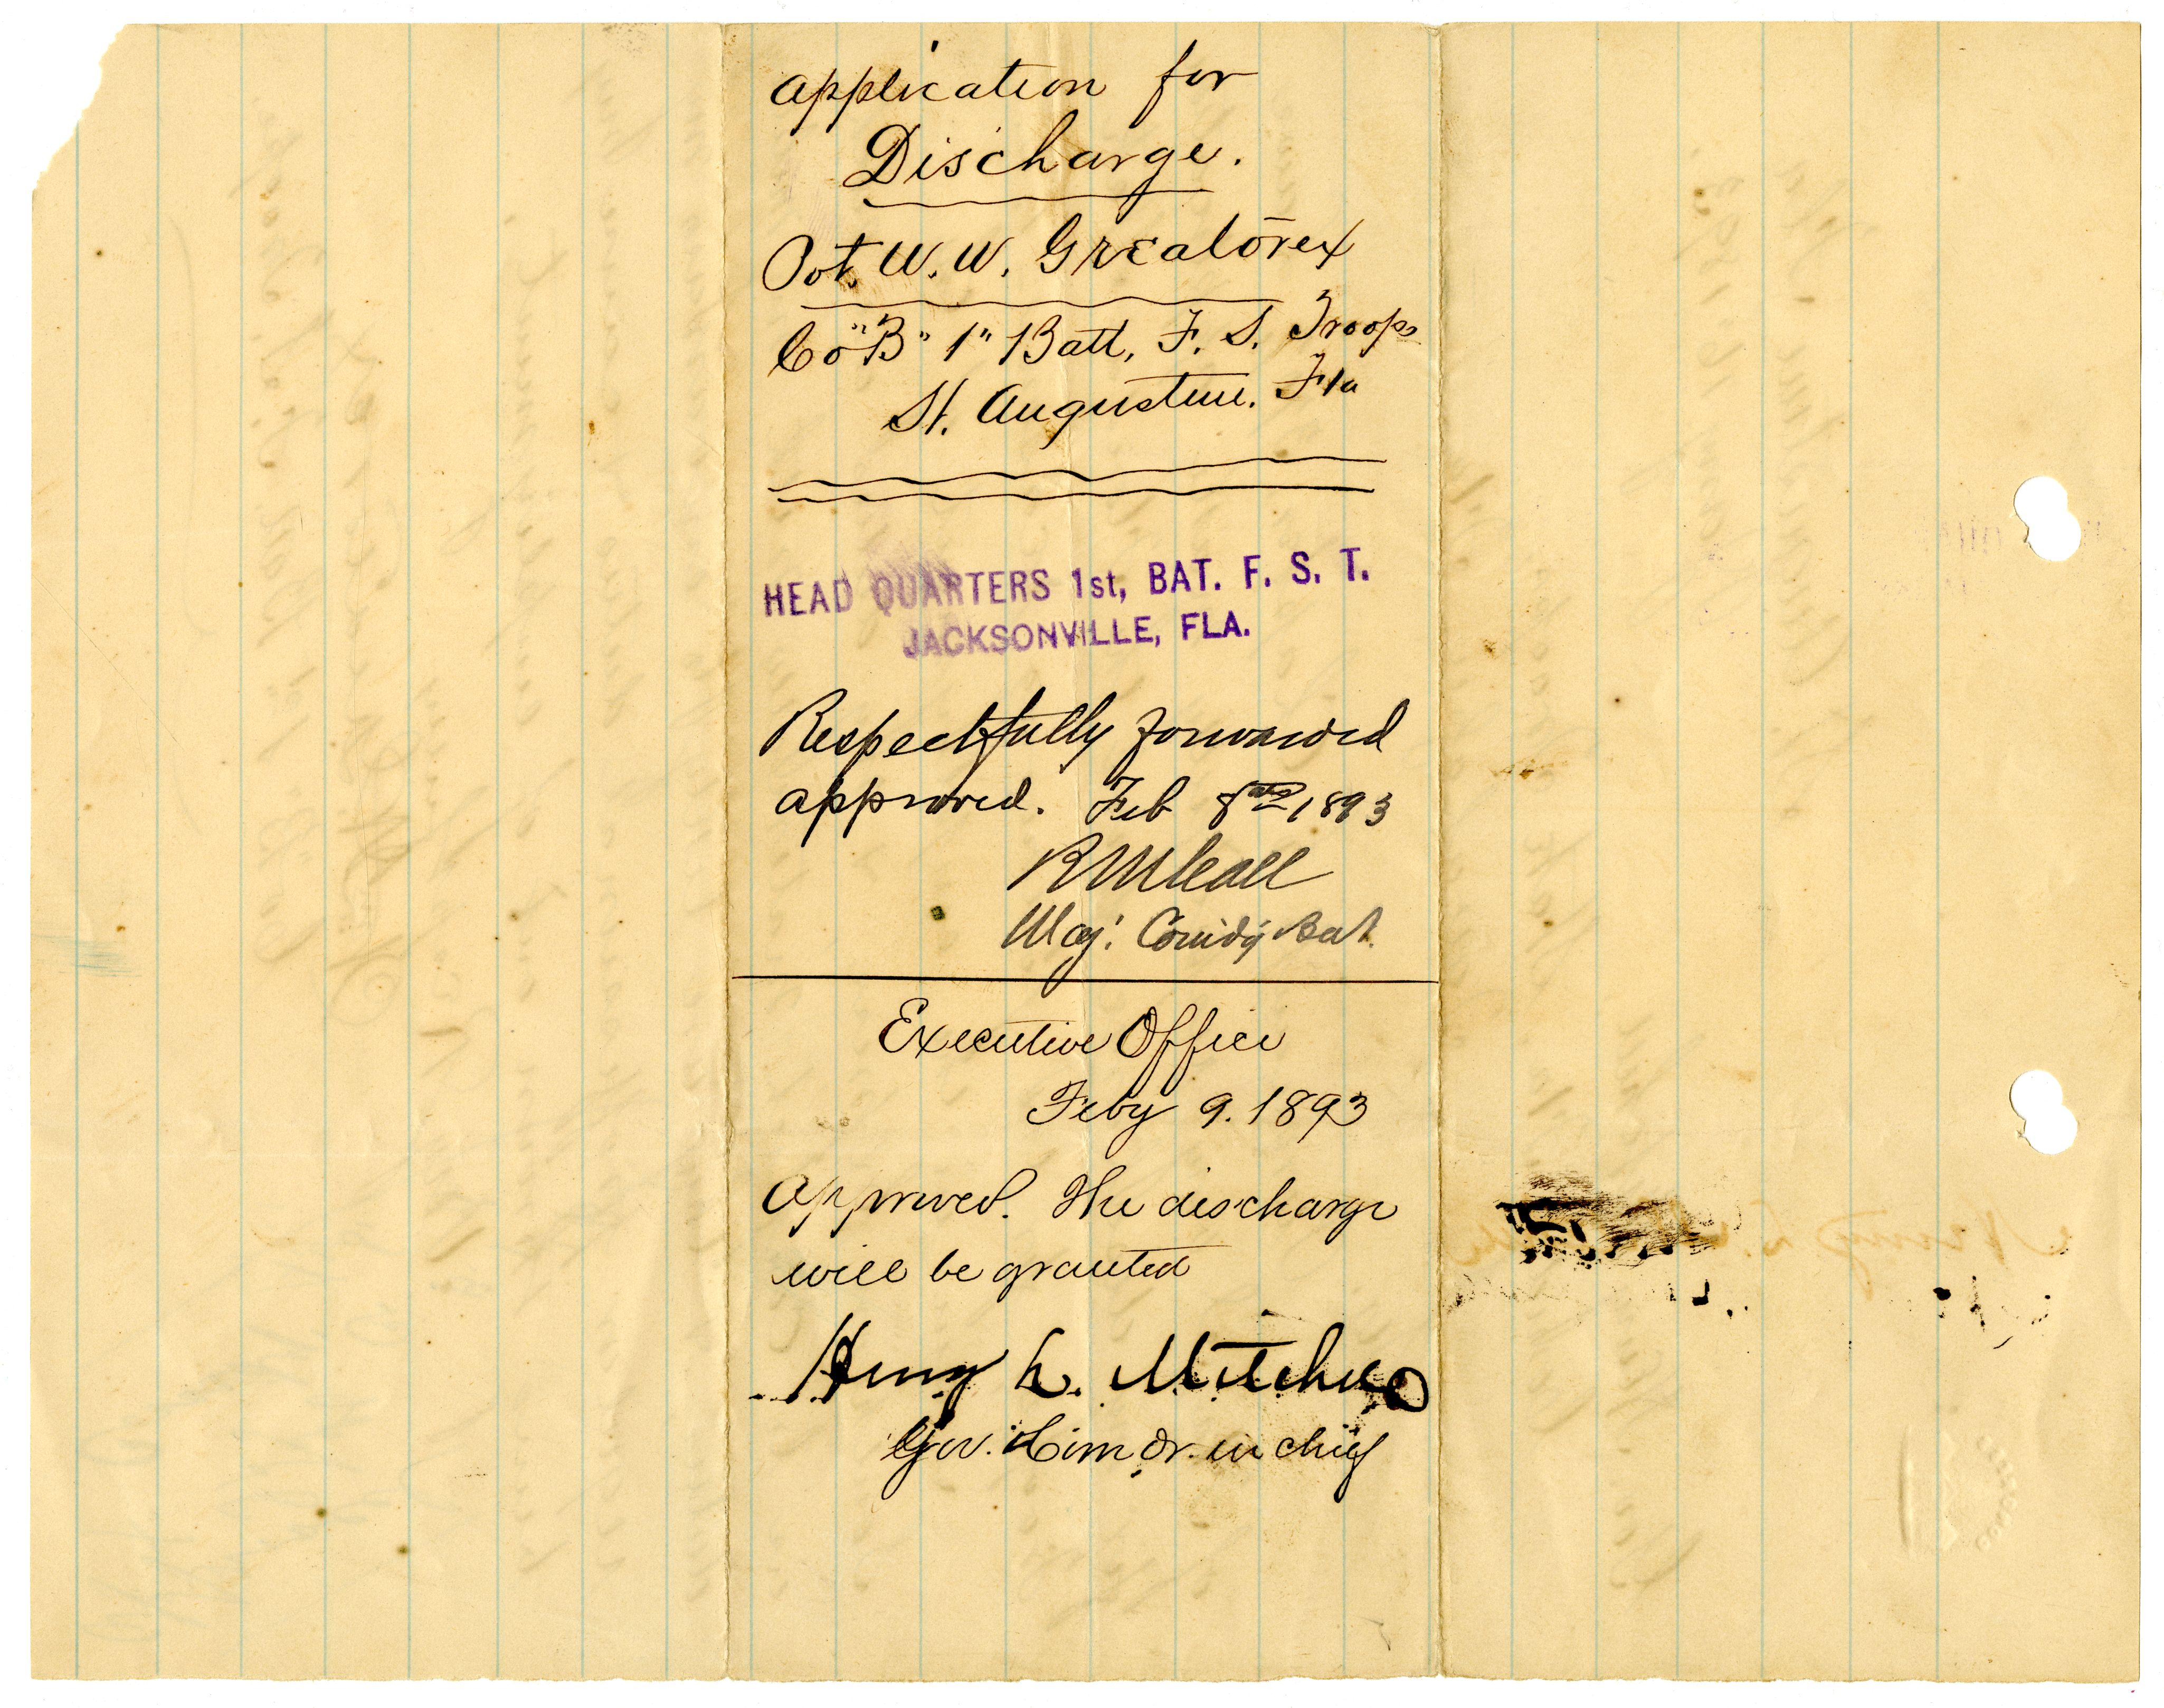 application for
Discharge.
Pvt. W. W. Greatorex
Co "B" 1" Batt, F. S. Troops
St. Augustine. Fla
HEAD QUARTERS 1st, BAT. F. S. T.
JACKSONVILLE, FLA.
Respectfully forwarded
approved. Feb 8th 1893
R M Call
Maj. Comdg Bat.
Executive Office
Feby 9. 1893
Approved. The discharge
will be granted
Henry L. Mitchell
Gov. Comdr. in chief